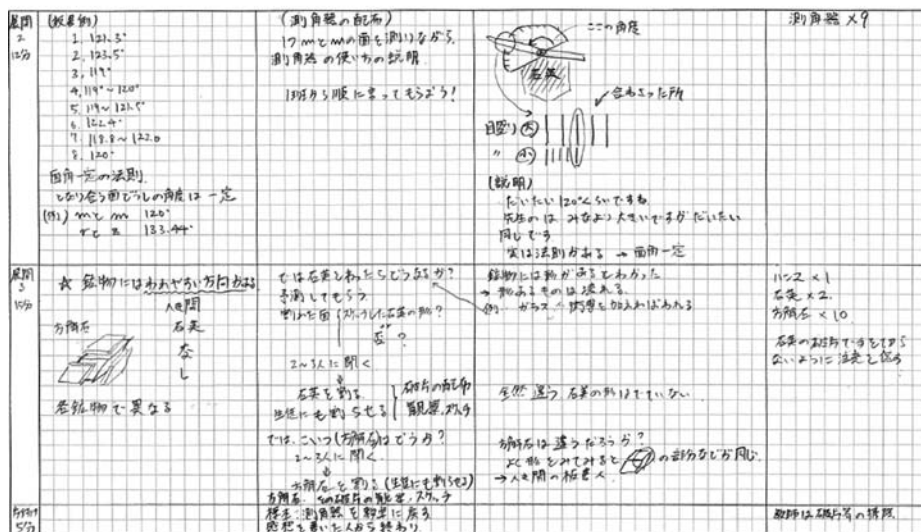 展開
2
12分
(結果例)
1. 121.3°
2. 123.5°
3. 119°
4. 119°~120°
5. 119~121.5°
6. 122.4°
7. 118.8~122.0
8. 120°
面角一定の法則
となり合う面どうしの角度は一定
(例) mとm 120°
rとz 133.44°
(測角器の配布)
mとmの面を測りながら、
測角器の使い方の説明
1班から順に言ってもらおう!
ここの角度
石英
合わさった所
目盛り 大
〃 小
(説明)
だいたい120°くらいですね
先生のは みなより大きいですがだいたい
同じです
実は法則がある → 面角一定
測角器 ×9
展開
3
15分
☆ 鉱物にはわれやすい方向がある
へき開
方解石
石英
なし
各鉱物で異なる
では石英をわったらどうなるか?
予測してもらう
割れた面
スケッチした石英の形?
歪?
2~3人に聞く
石英を割る
生徒にも割らせる
破片の配布
観察、スケッチ
では、こいつ(方解石)はどうか?
2~3人に聞く
方解石を割る(生徒にも割らせる)
方解石 その破片の観察、スケッチ
鉱物には形があるとわかった
→ 形あるものは壊れる
例. ガラス 衝撃を加えればわれる
全然違う、石英の形はでていない
方解石は違うだろうか?
よく形をみてみると の部分などが同じ
→ へき開の板書へ
ハンマー ×1
石英 ×2
方解石 ×10
石英の破片で手をきら
ないように注意を促す
5分
標本・測角器を教卓に戻す
感想を書いた人から終わり
教師は破片等の掃除